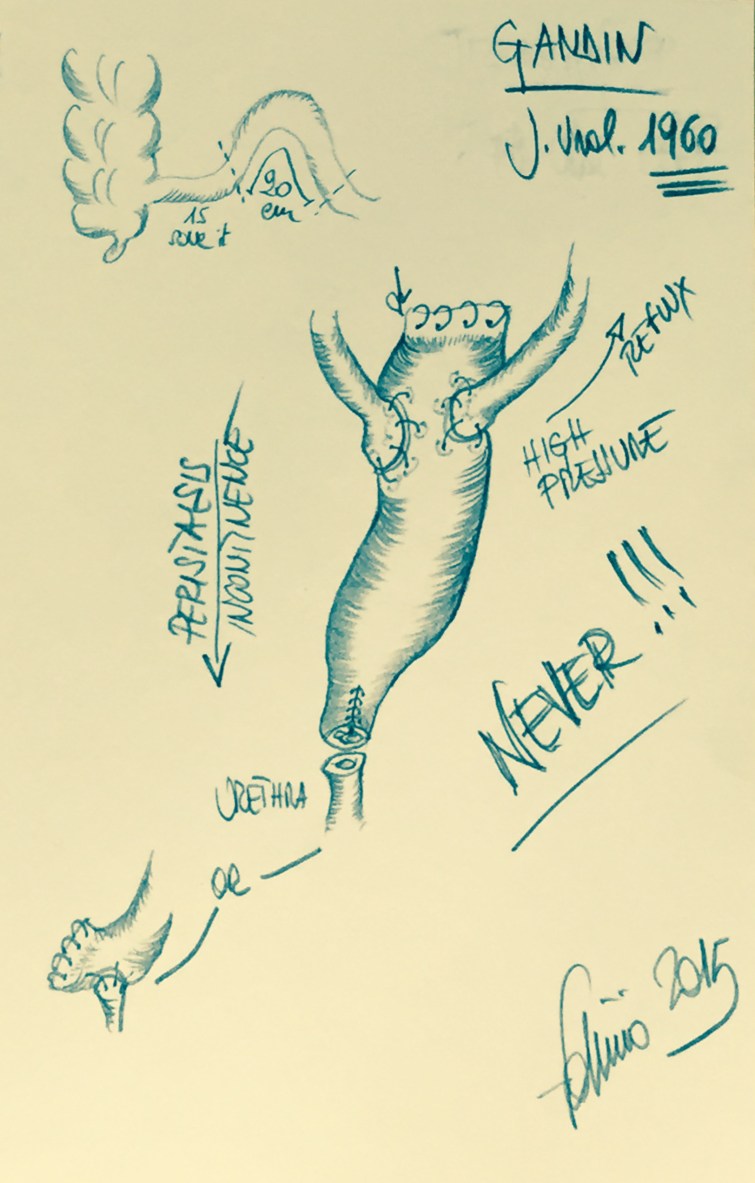 GANDIN
J. Urol. 1960
20
cm
15
REFLUX
HIGH
PRESSURE
PERISTALSIS
INCONTINENCE
NEVER!!!
URETHRA
OR
2015